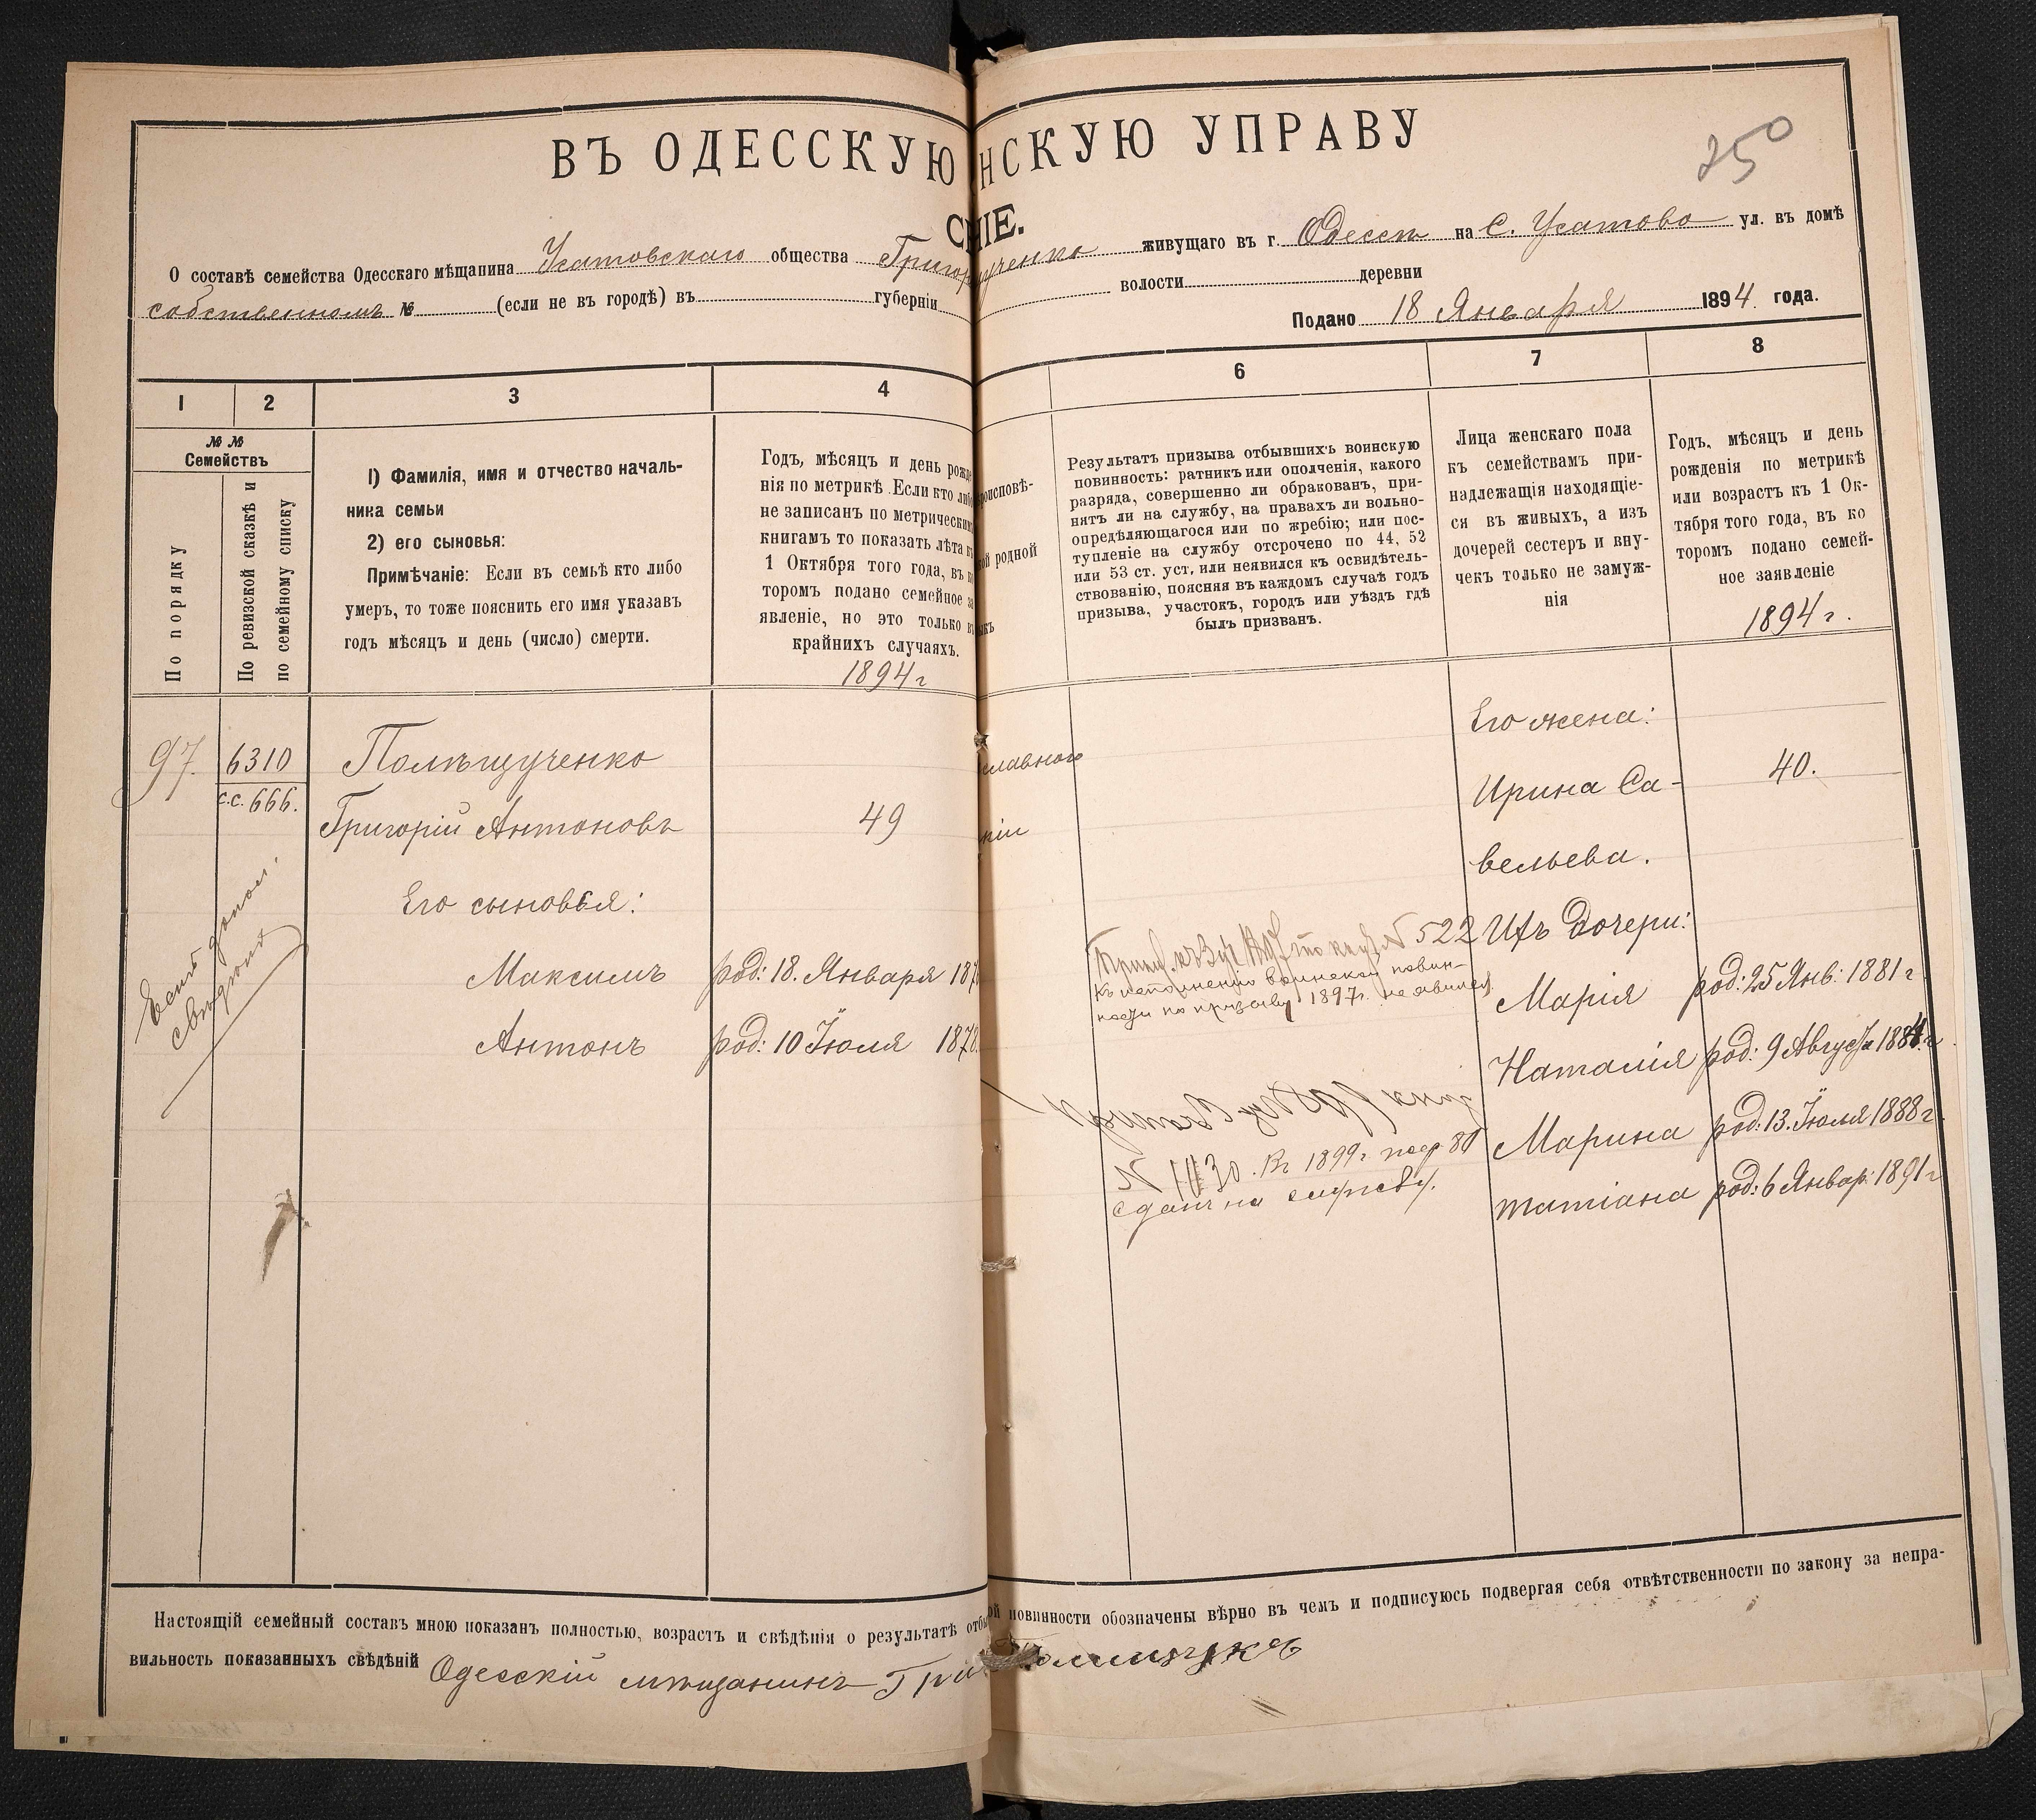 ВЪ ОДЕССКУЮ НСКУЮ УПРАВУ
250
СНІЕ.
О составѣ семейства Одесскаго мѣщанина Усатовскаго общества Григор щученко живущаго въ г. Одессѣ на с. Усатово ул. въ домѣ
собственномъ № (если не въ городѣ) въ губерніи волости деревни
Подано 18 Января 1894 года.
1 2 3 4 6 7 8
№ №
Семействъ
По порядку
По ревизской сказкѣ и
по семейному списку
1) Фамилія, имя и отчество началь-
ника семьи
2) его сыновья:
Примѣчаніе: Если въ семьѣ кто либо
умеръ, то тоже пояснить его имя указавъ
годъ мѣсяцъ и день (число) смерти.
Годъ, мѣсяцъ и день рожде
нія по метрикѣ. Если кто либо
не записанъ по метрическимъ
книгамъ то показать лѣта къ
1 Октября того года, въ ко
торомъ подано семейное за
явленіе, но это только въ
крайнихъ случаяхъ.
1894 г
роисповѣ-
ой родной
ыкъ
Результатъ призыва отбывшихъ воинскую
повинность: ратникъ или ополченія, какого
разряда, совершенно ли обракованъ, при-
нятъ ли на службу, на правахъ ли вольно-
опредѣляющагося или по жребію; или пос-
тупленіе на службу отсрочено по 44, 52
или 53 ст. уст. или неявился къ освидѣтель-
ствованію, поясняя въ каждомъ случаѣ годъ
призыва, участокъ, городъ или уѣздъ гдѣ
былъ призванъ.
Лица женскаго пола
къ семействамъ при-
надлежащія находящіе-
ся въ живыхъ, а изъ
дочерей сестеръ и вну-
чекъ только не замуж-
нія
Годъ, мѣсяцъ и день
рожденія по метрикѣ
или возрастъ къ 1 Ок-
тября того года, въ ко
торомъ подано семей-
ное заявленіе
1894 г.
97. 6310
с.с. 666.
Полѣщученко
Григорій Антоновъ 49
Его сыновья:
Максимъ род: 18. Января 187
Антонъ род: 10 Іюля 1878.
Есть допол.
славнаго
кіи
№ 522
къ исполненію воинской повин-
ности по призыву 1897 г. не явился.
№ 1030. Въ 1899 г
сданъ на службу.
Его жена:
Ирина Са- 40.
вельева.
Ихъ дочери:
Марія род: 25 Янв: 1881 г
Наталія род: 9 Августа 1884 г
Марина род: 13. Іюля 1888 г
Татіана род: 6 Январ: 1891 г
Настоящій семейный составъ мною показанъ полностью, возрастъ и свѣдѣнія о результатѣ отбы ой повинности обозначены вѣрно въ чемъ и подписуюсь подвергая себя отвѣтственности по закону за непра-
вильность показанныхъ свѣдѣній Одесскій мѣщанинъ Гри